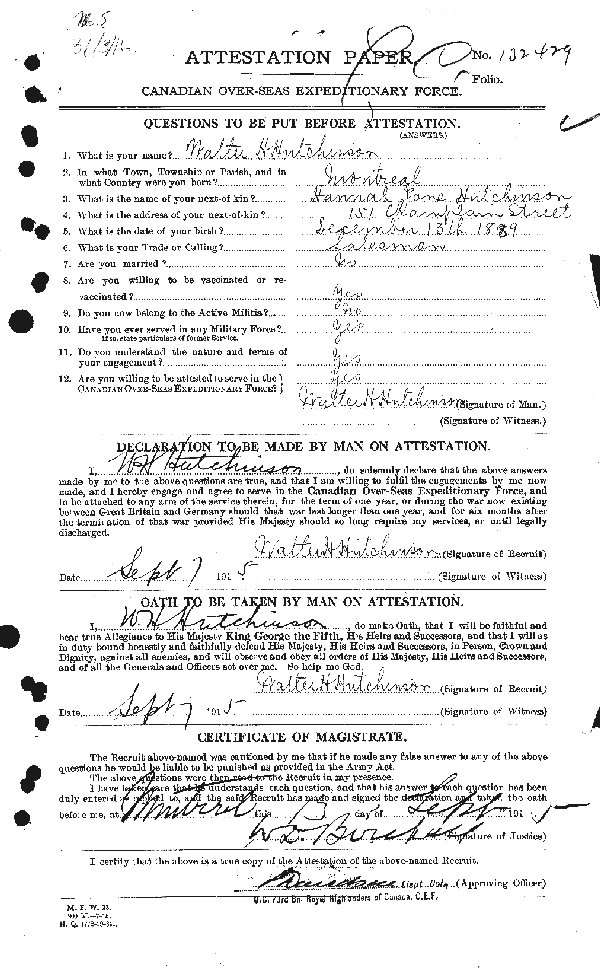 M. S
ATTESTATION PAPER
No. 132429
Folio.
CANADIAN OVER-SEAS EXPEDITIONARY FORCE.
QUESTIONS TO BE PUT BEFORE ATTESTATION.
(ANSWERS)
1. What is your name? Walter H Hutchinson
2. In what Town, Township or Parish, and in
what Country were you born? Montreal
3. What is the name of your next-of-kin? Hannah Jane Hutchinson
4. What is the address of your next-of-kin? 151 Champlain Street
5. What is the date of your birth? September 13th 1889
6. What is your Trade or Calling? Salesman
7. Are you married?
8. Are you willing to be vaccinated or re-
vaccinated? Yes
9. Do you now belong to the Active Militia? No
10. Have you ever served in any Military Force? Yes
If so, state particulars of former Service.
11. Do you understand the nature and terms of
your engagement? Yes
12. Are you willing to be attested to serve in the Yes
CANADIAN OVER-SEAS EXPEDITIONARY FORCE?
Walter H Hutchinson (Signature of Man.)
(Signature of Witness.)
DECLARATION TO BE MADE BY MAN ON ATTESTATION.
I, W H Hutchinson, do solemnly declare that the above answers
made by me to the above questions are true, and that I am willing to fulfil the engagements by me now
made, and I hereby engage and agree to serve in the Canadian Over-Seas Expeditionary Force, and
to be attached to any arm of the service therein, for the term of one year, or during the war now existing
between Great Britain and Germany should that war last longer than one year, and for six months after
the termination of that war provided His Majesty should so long require my services, or until legally
discharged.
Walter H Hutchinson (Signature of Recruit)
Date Sept 7 1915 (Signature of Witness)
OATH TO BE TAKEN BY MAN ON ATTESTATION.
I, W H Hutchinson, do make Oath, that I will be faithful and
bear true Allegiance to His Majesty King George the Fifth, His Heirs and Successors, and that I will as
in duty bound honestly and faithfully defend His Majesty, His Heirs and Successors, in Person, Crown and
Dignity, against all enemies, and will observe and obey all orders of His Majesty, His Heirs and Successors,
and of all the Generals and Officers set over me. So help me God.
Walter H Hutchinson (Signature of Recruit)
Date Sept 7 1915 (Signature of Witness)
CERTIFICATE OF MAGISTRATE.
The Recruit above-named was cautioned by me that if he made any false answer to any of the above
questions he would be liable to be punished as provided in the Army Act.
The above questions were then read to the Recruit in my presence.
I have taken care that he understands each question, and that his answer to each question has been
duly entered as replied to, and the said Recruit has made and signed the declaration and taken the oath
before me, at Montreal this 7 day of Sept 1915
(Signature of Justice)
I certify that the above is a true copy of the Attestation of the above-named Recruit.
Lieut-Col. (Approving Officer)
O.C. 73rd Bn. Royal Highlanders of Canada, C.E.F.
M. F. W. 23.